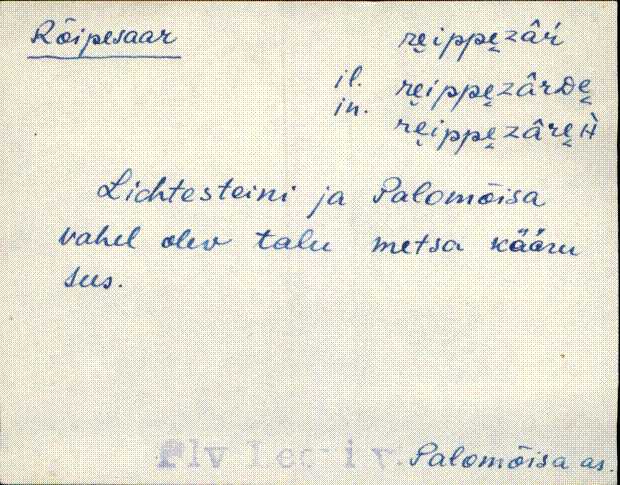 Rõipesaar rẹippẹzâŕ
il. rẹippẹzârDẹ
in. rẹippẹzârẹH̀
Lichtesteini ja Palomõisa
vahel olev talu metsa kääru
sus.
Plv Palomõisa as.